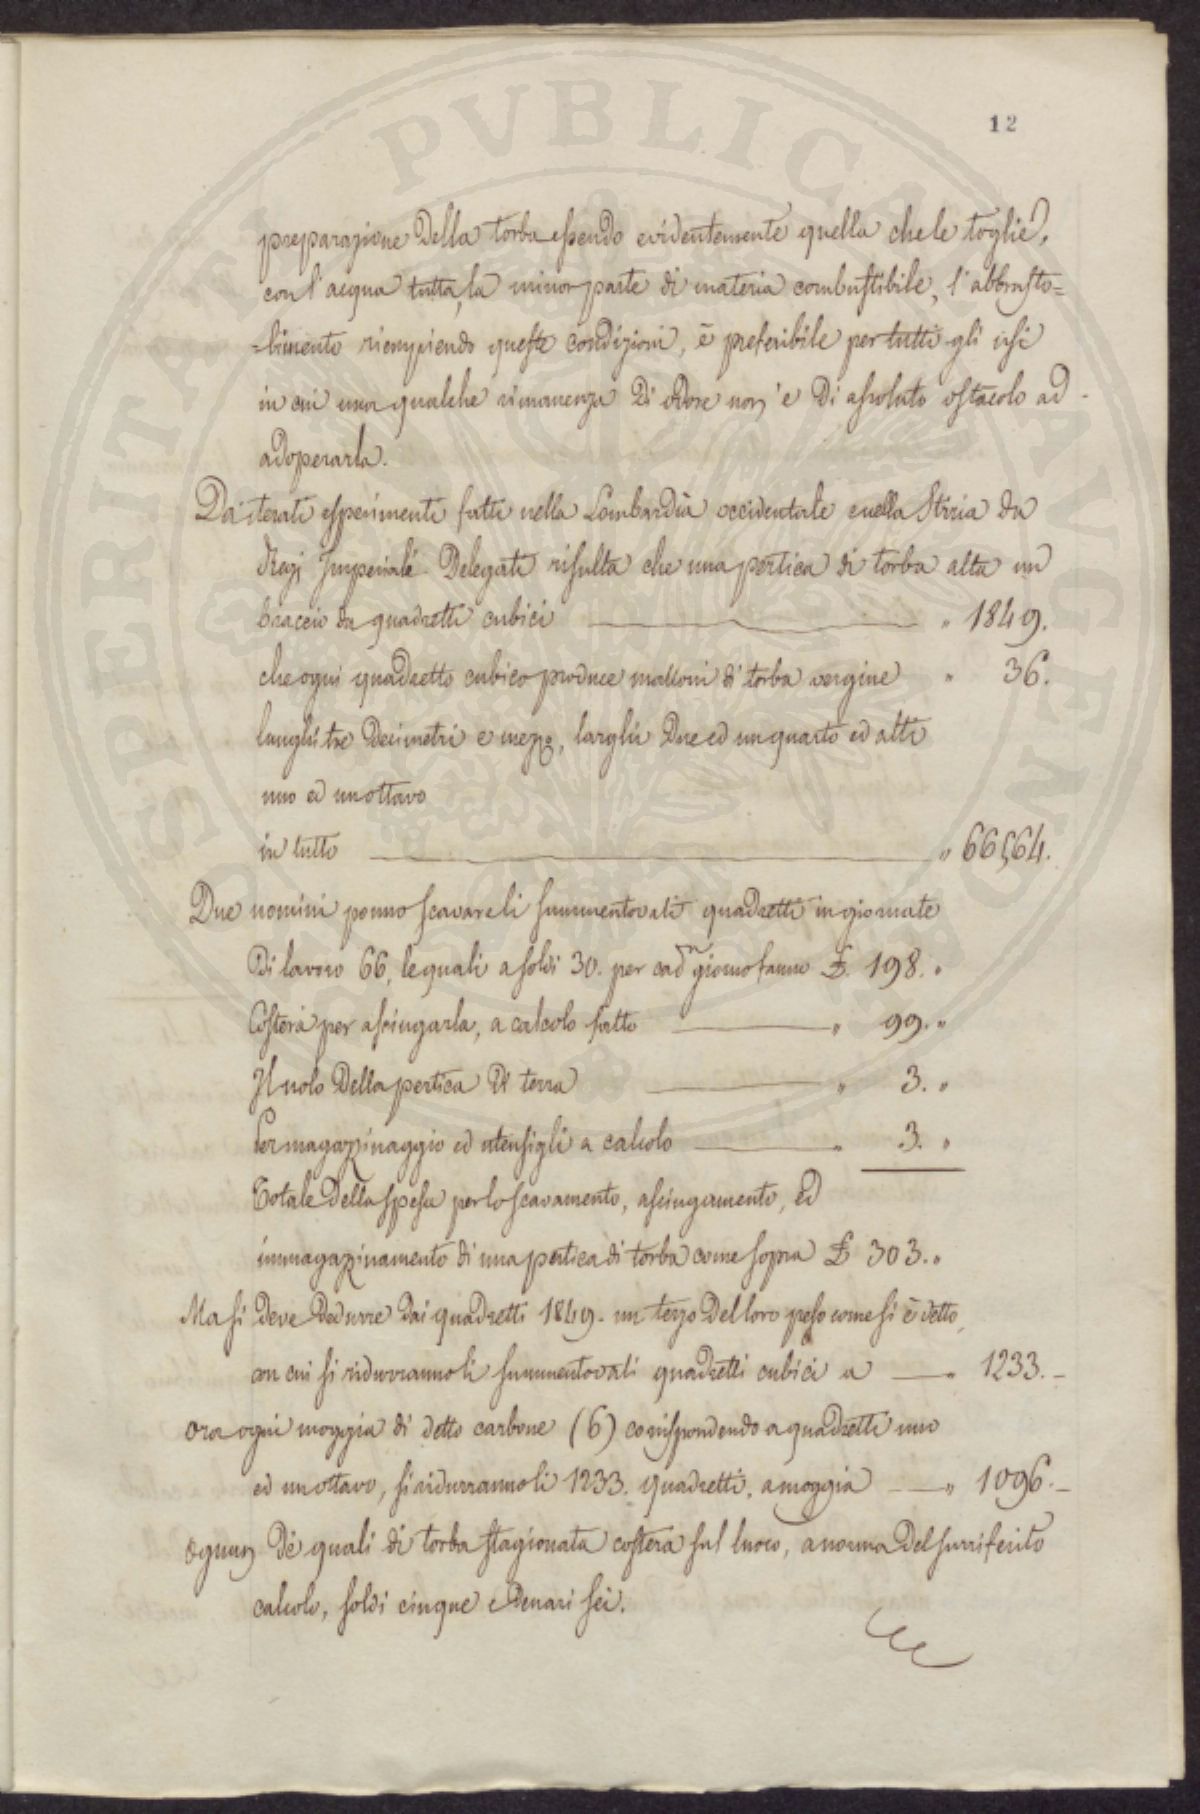 12
preparazione della torba essendo evidentemente quella che le toglie,
con l'acqua tutta, la minor parte di materia combustibile, l'abbrusto=
=limento riempiendo queste condizioni, è preferibile per tutti gli usi
in cui una qualche rimanenza di odore non è di assoluto ostacolo ad
adoperarla.
Da iterati esperimenti fatti nella Lombardia occidentale e nella Stiria da
Regj Imperiali Delegati risulta che una pertica di torba alta un
braccio da quadretti cubici " 1849.
che ogni quadretto cubico produce mattoni di torba vergine " 36.
lunghi tre decimetri e mezzo, larghi due ed un quarto ed alti
uno ed un ottavo
in tutto " 66564.
Due uomini ponno scavare li summentovati quadretti in giornate
di lavoro 66, le quali a soldi 30. per cadn giorno fanno £. 198. "
Costerà per asciugarla, a calcolo fatto " 99. "
Il nolo della pertica di terra " 3. "
Per magazzinaggio ed utensigli a calcolo " 3. "
Totale della spesa per lo scavamento, asciugamento, ed
immagazzinamento di una pertica di torba come sopra £ 303. "
Ma si deve dedurre dai quadretti 1849. un terzo del loro peso come si è detto,
con cui si ridurranno li summentovati quadretti cubici a " 1233. -
Ora ogni moggia di detto carbone (6) corrispondendo a quadretti uno
ed un ottavo, si ridurranno li 1233. quadretti, a moggia " 1096. -
Ognun de quali di torba stagionata costerà sul luoco, a norma del surriferito
calcolo, soldi cinque e denari sei.
PERITATI PVBLICAE AVGENDAE